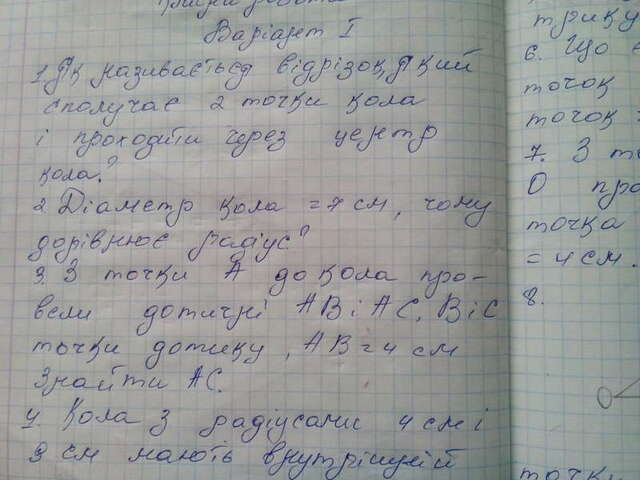 Варіант I
1. Як називається відрізок, який
сполучає 2 точки кола
і проходить через центр
кола?
2 Діаметр кола = 7 см, чому
дорівнює радіус?
3. З точки А до кола про-
вели дотичні АВ і АС. В і С
точки дотику, АВ = 4 см
Знайти АС.
4. Кола з радіусами 4 см і
9 см мають внутрішній
трику
6. Що
точок
точок
7. З
О про
точка
= 4 см.
8.
О
точки